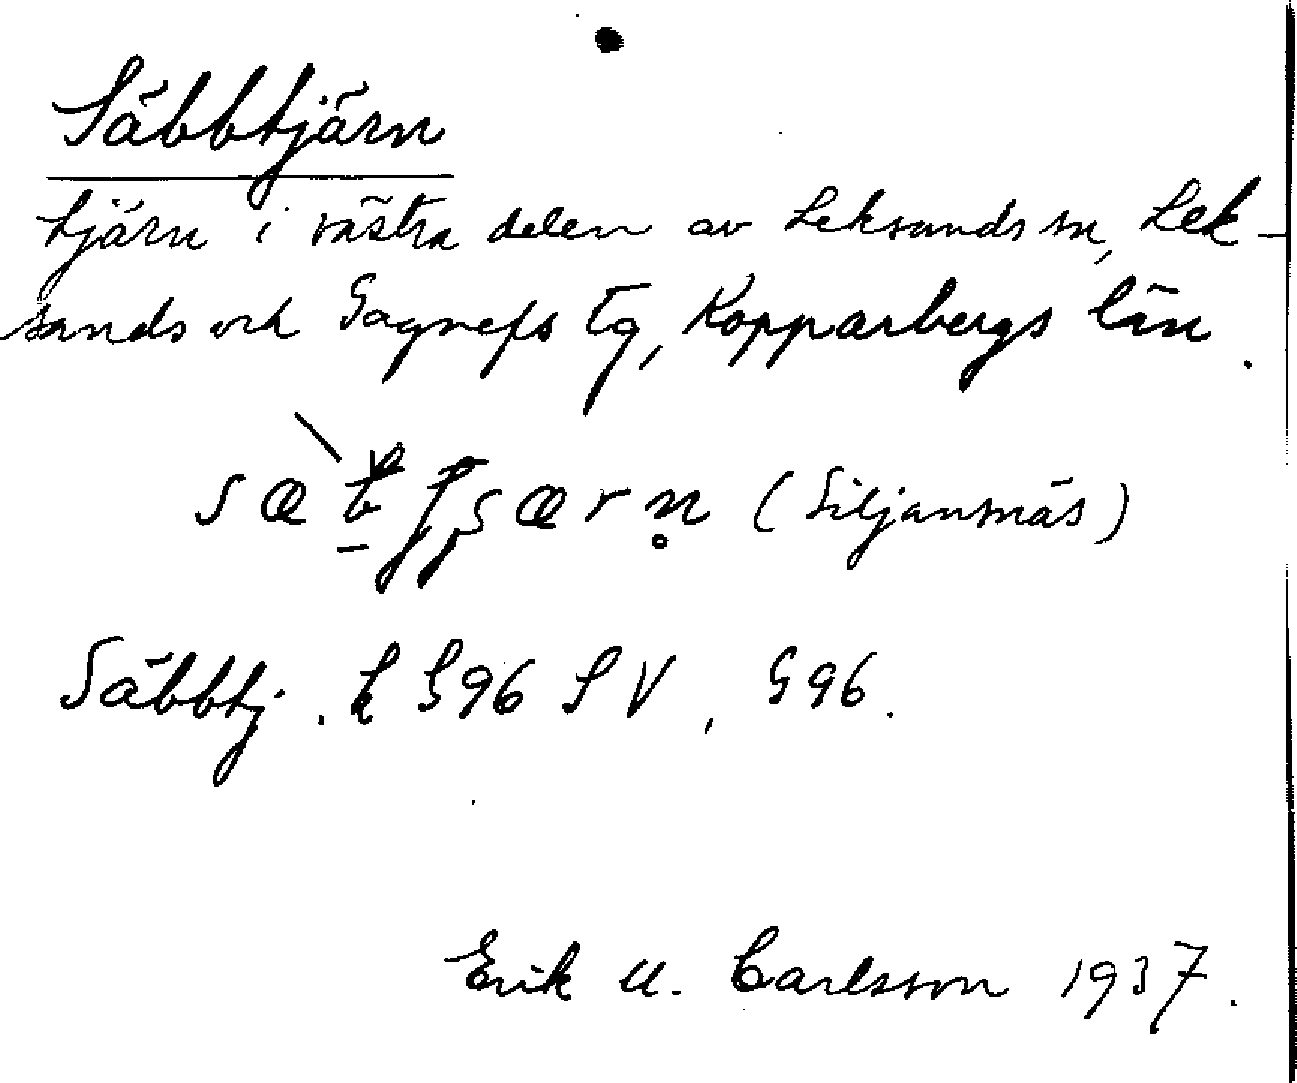 Säbbtjärn
tjärn i västra delen av Leksands sn, Lek-
sands och Gagnefs tg, Kopparbergs län.
(Siljansnäs)
Säbbtj. k S96 SV, G96.
Erik U. Carlsson 1937.